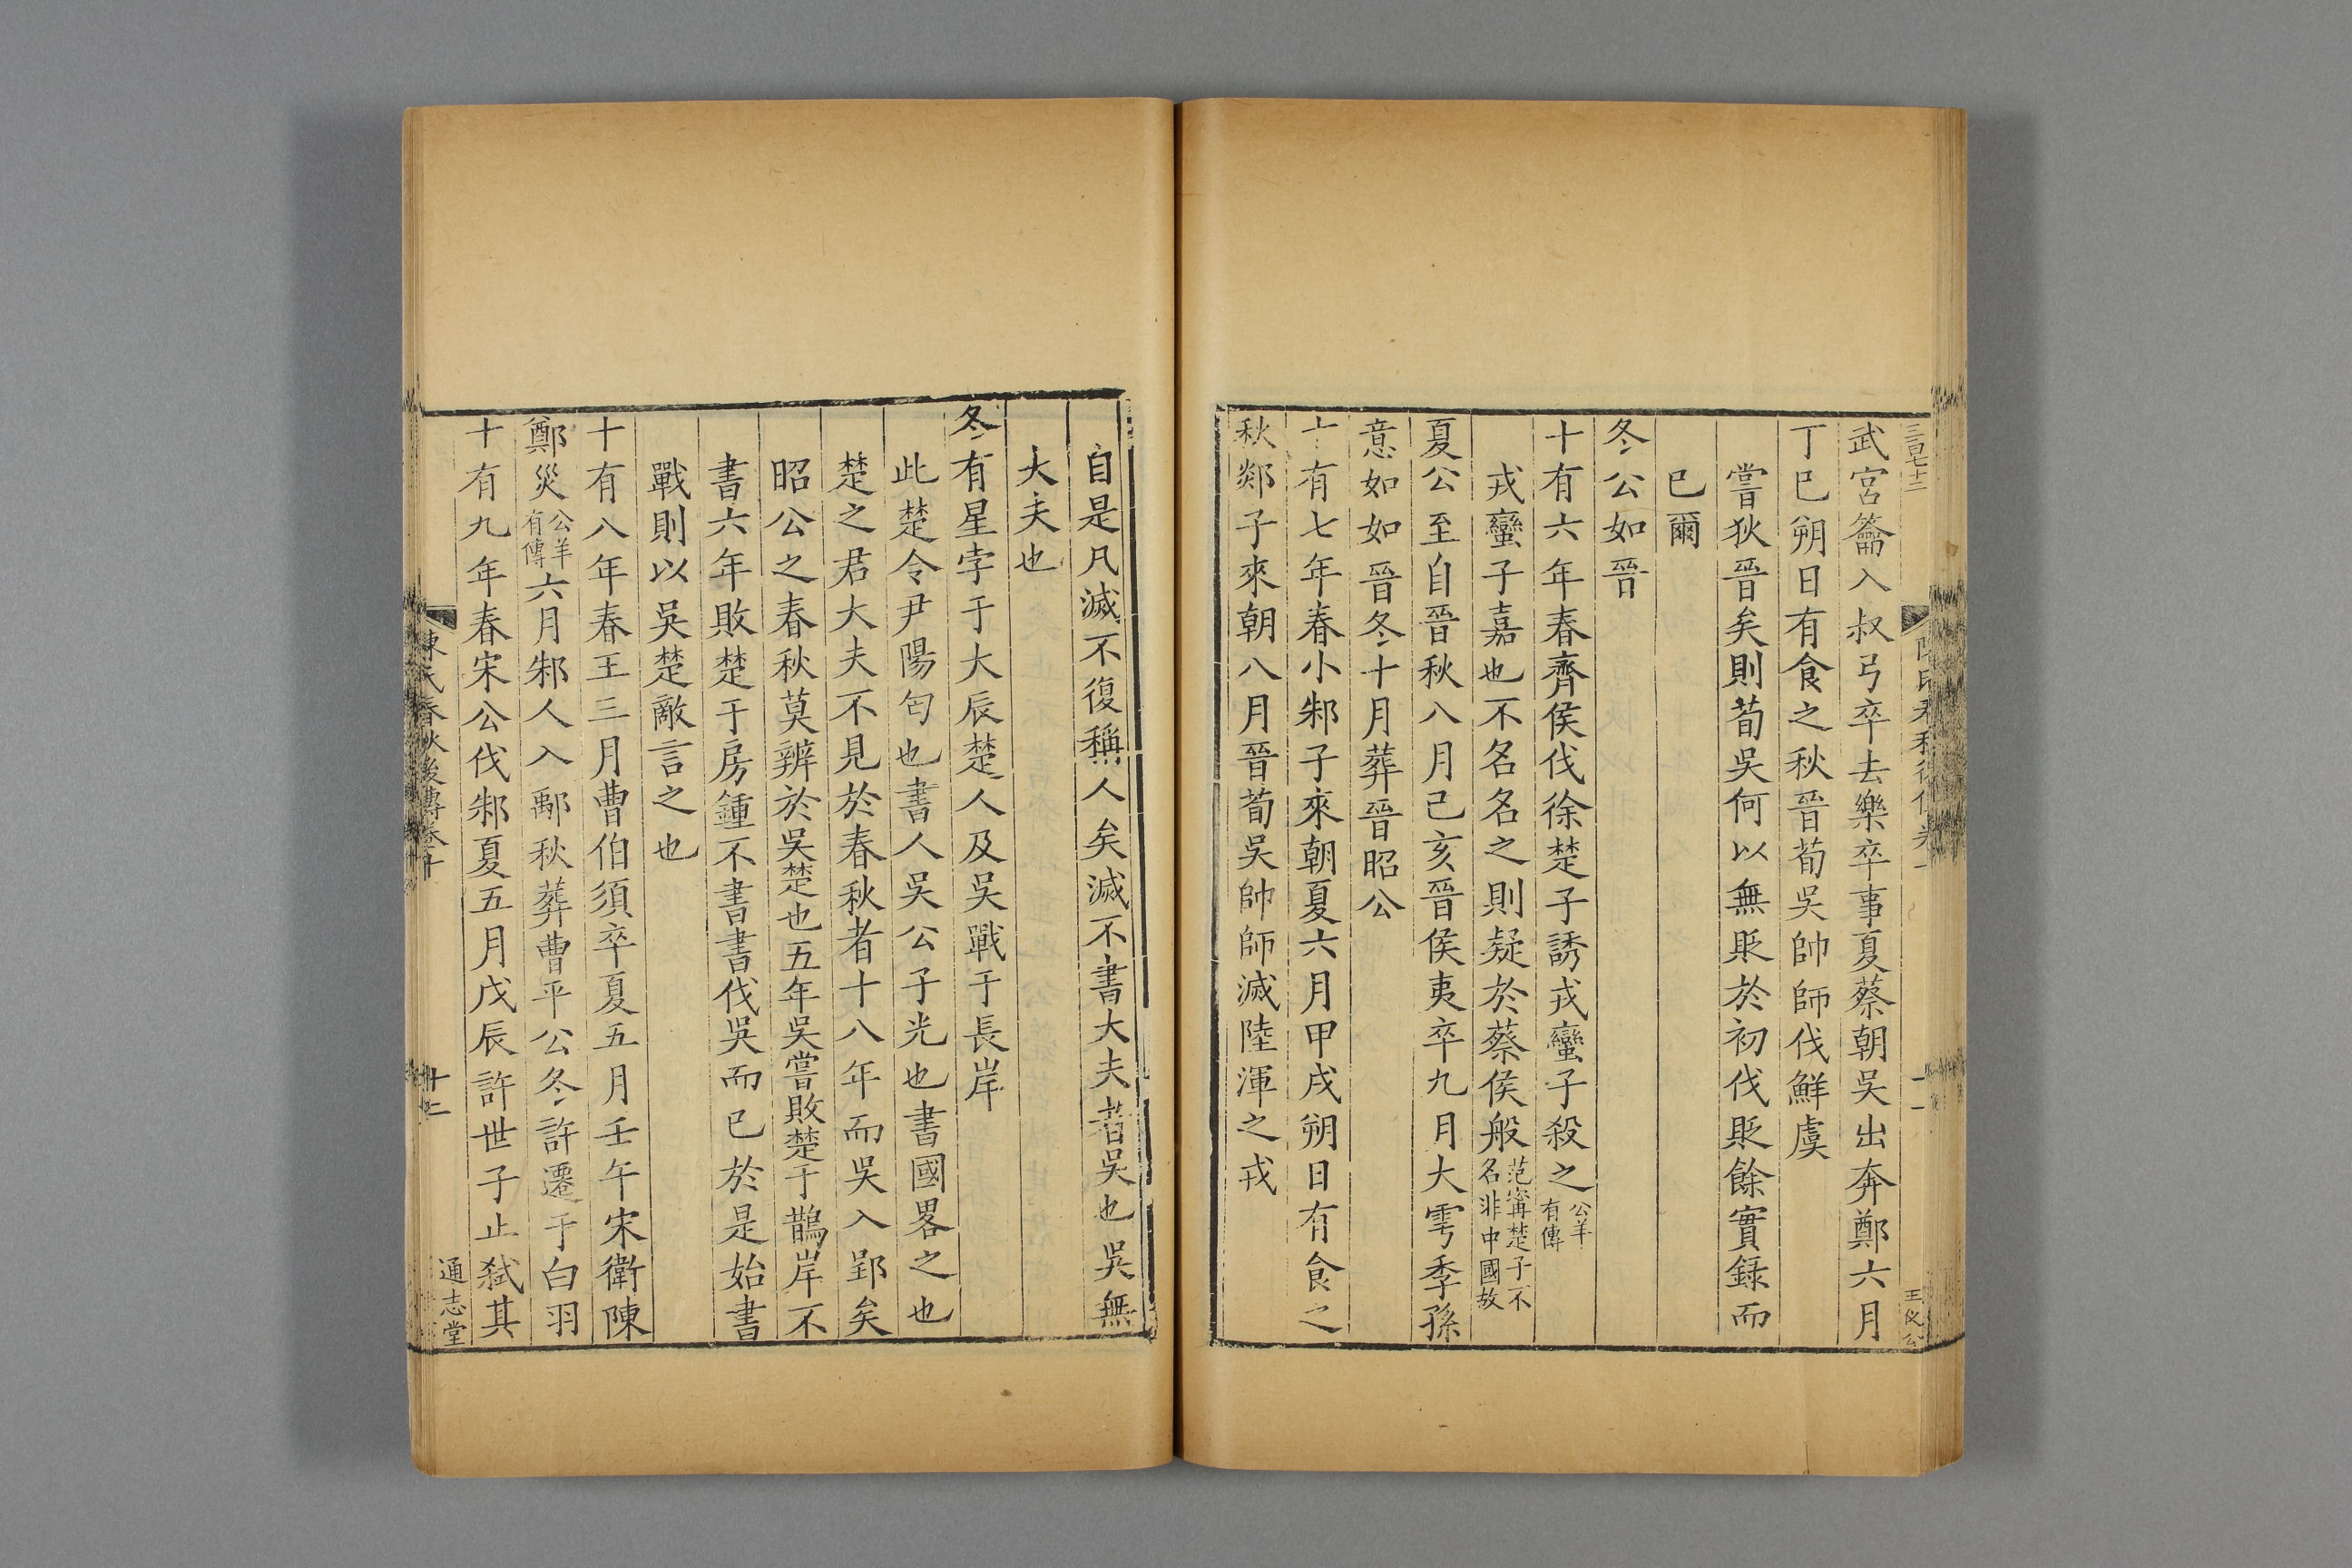 三百七十二
王
武宮籥入叔弓卒去樂卒事夏蔡朝吳出奔鄭六月
丁巳朔日有食之秋晉荀吳帥師伐鮮虞
嘗狄晉矣則荀吳何以無貶於初伐貶餘實録而
已爾
冬公如晉
十有六年春齊侯伐徐楚子誘戎蠻子殺之公羊有傳
戎蠻子嘉也不名名之則疑於蔡侯般范甯楚子不名非中國故
夏公至自晉秋八月己亥晉侯夷卒九月大雩季孫
意如如晉冬十月葬晉昭公
十有七年春小邾子來朝夏六月甲戌朔日有食之
秋郯子來朝八月晉荀吳帥師滅陸渾之戎
自是凡滅不復稱人矣滅不書大夫者吳也吳無
大夫也
冬有星孛于大辰楚人及吳戰于長岸
此楚令尹陽匄也書人吳公子光也書國畧之也
楚之君大夫不見於春秋者十八年而吳入郢矣
昭公之春秋莫辨於吳楚也五年吳嘗敗楚于鵲岸不
書六年敗楚于房鍾不書書伐吳而已於是始書
戰則以吳楚敵言之也
十有八年春王三月曹伯須卒夏五月壬午宋衛陳
鄭災公羊有傳六月邾人入鄅秋葬曹平公冬許遷于白羽
十有九年春宋公伐邾夏五月戊辰許世子止弑其
陳氏春秋後傳卷十
十二
通志堂